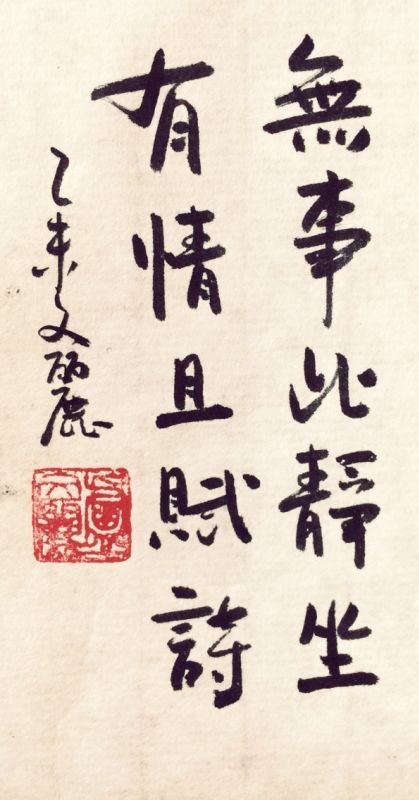 無事此靜坐
有情且賦詩
乙未文麗